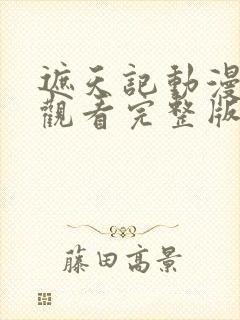 遮天記動漫
觀看完整版
藤田高景